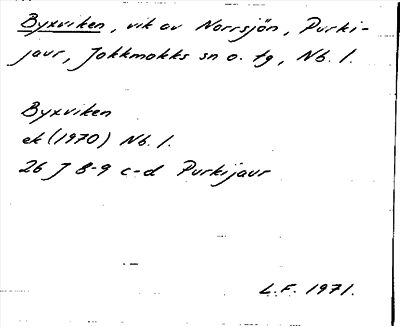 Byxviken, vik av Norrsjön, Purki-
jaur, Jokkmokks sn o. tg, Nb. l.
Byxviken
ek (1970) Nb. l.
26 J 8-9 c-d Purkijaur
L.F. 1971.